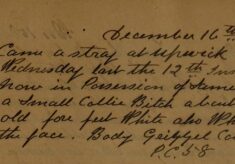 December 16th
Came a stray at Upwick
Wednesday last the 12th Ins
now in Possession of Jame
a Small Collie Bitch about
old fore feet White also Wh
the face. Body Co
P.C. 58